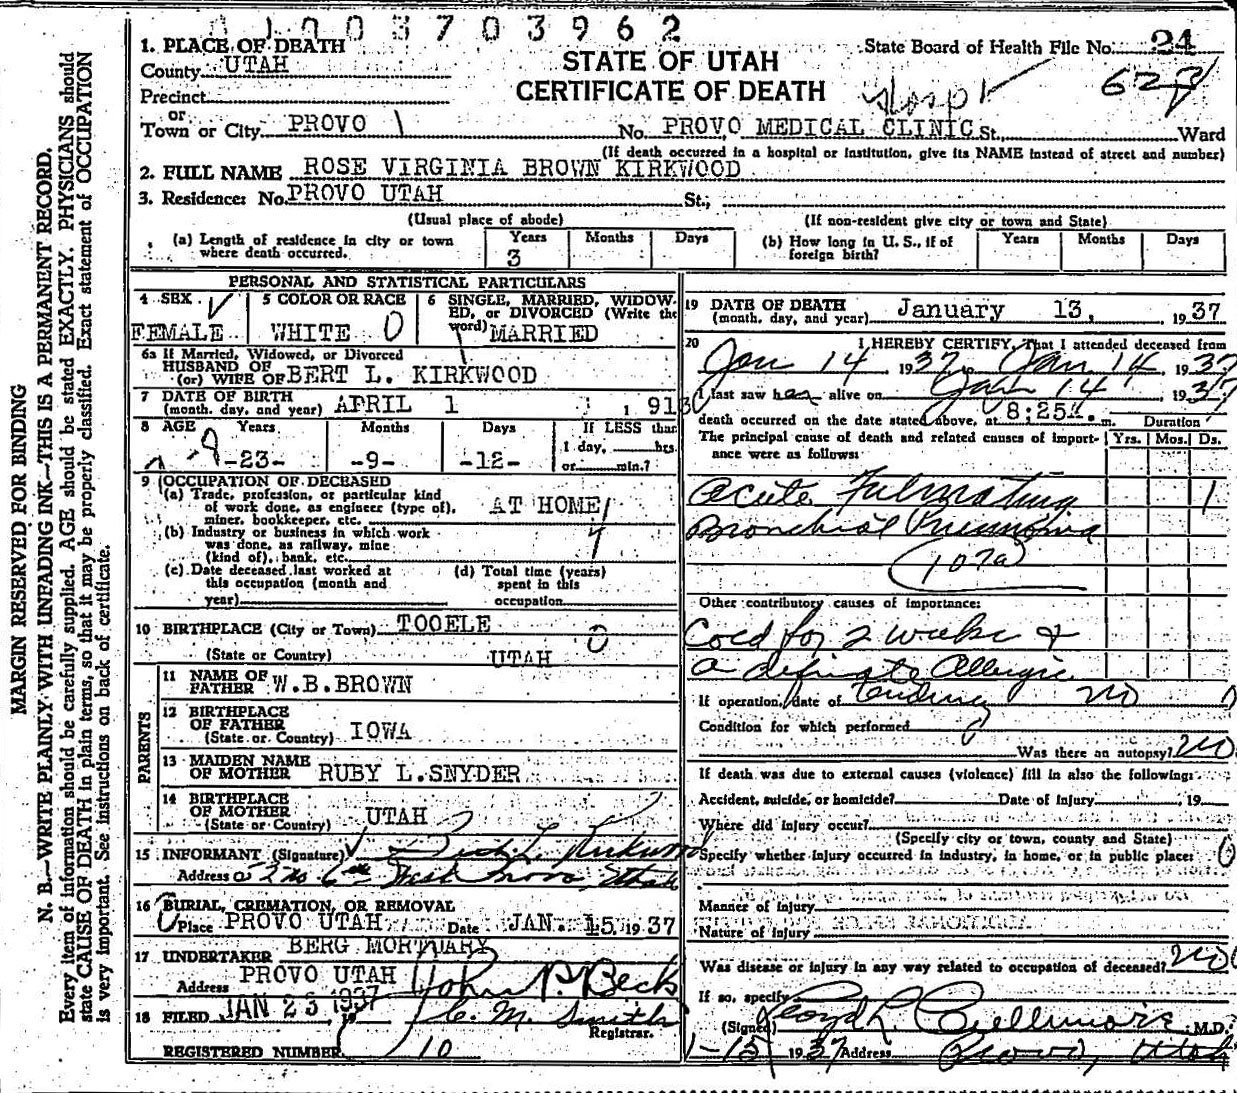 0 1 0 0 3 7 0 3 9 6 2
1. PLACE OF DEATH
County UTAH
Precinct
or
Town or City PROVO
STATE OF UTAH
CERTIFICATE OF DEATH
State Board of Health File No. 24
Hospt
No. PROVO MEDICAL CLINIC St. Ward
(If death occurred in a hospital or institution, give its NAME instead of street and number)
2. FULL NAME ROSE VIRGINIA BROWN KIRKWOOD
3. Residence: No. PROVO UTAH St.,
(Usual place of abode) (If non-resident give city or town and State)
(a) Length of residence in city or town where death occurred. Years 3 Months Days
(b) How long in U. S., if of foreign birth? Years Months Days
PERSONAL AND STATISTICAL PARTICULARS
4 SEX FEMALE
5 COLOR OR RACE WHITE 0
6 SINGLE, MARRIED, WIDOWED, or DIVORCED (Write the word) MARRIED
6a If Married, Widowed, or Divorced
HUSBAND OF
(or) WIFE OF BERT L. KIRKWOOD
7 DATE OF BIRTH
(month, day, and year) APRIL 1 , 913
8 AGE Years Months Days If LESS than
-23- -9- -12- 1 day, hrs.
or min.?
9 OCCUPATION OF DECEASED
(a) Trade, profession, or particular kind
of work done, as engineer (type of),
miner, bookkeeper, etc. AT HOME
(b) Industry or business in which work
was done, as railway, mine
(kind of), bank, etc.
(c) Date deceased last worked at
this occupation (month and
year)
(d) Total time (years)
spent in this
occupation
10 BIRTHPLACE (City or Town) TOOELE 0
(State or Country) UTAH
PARENTS
11 NAME OF
FATHER W.B.BROWN
12 BIRTHPLACE
OF FATHER
(State or Country) IOWA
13 MAIDEN NAME
OF MOTHER RUBY L.SNYDER
14 BIRTHPLACE
OF MOTHER
(State or Country) UTAH
15 INFORMANT (Signature) Bert L. Kirkwood
Address 02 no. 6th West Provo, Utah
16 BURIAL, CREMATION, OR REMOVAL
Place PROVO UTAH Date JAN. 15 1937
17 UNDERTAKER BERG MORTUARY
Address PROVO UTAH John P. Beck
18 FILED JAN 23 1937 C. M. Smith
Registrar.
REGISTERED NUMBER 10
19 DATE OF DEATH
(month, day, and year) January 13, 1937
20 I HEREBY CERTIFY, That I attended deceased from
Jan 14 1937, Jan 14, 1937
I last saw her alive on Jan 14 1937
death occurred on the date stated above, at 8:25 m.
The principal cause of death and related causes of importance were as follows: Duration Yrs. Mos. Ds.
Acute Fulmating 1
Bronchial Pneumonia
(107a)
Other contributory causes of importance:
Cold for 2 weeks &
a definate Allergic
Tendency
If operation, date of no
Condition for which performed
Was there an autopsy? no
If death was due to external causes (violence) fill in also the following:
Accident, suicide, or homicide? Date of injury , 19
Where did injury occur?
(Specify city or town, county and State)
Specify whether injury occurred in industry, in home, or in public place: 0
Manner of injury
Nature of injury
Was disease or injury in any way related to occupation of deceased? no
If so, specify
(Signed) Lloyd L. Cullimore M.D.
1-15 1937 Address Provo, Utah
MARGIN RESERVED FOR BINDING
N. B.—WRITE PLAINLY WITH UNFADING INK—THIS IS A PERMANENT RECORD.
Every item of information should be carefully supplied. AGE should be stated EXACTLY. PHYSICIANS should
state CAUSE OF DEATH in plain terms, so that it may be properly classified. Exact statement of OCCUPATION
is very important. See instructions on back of certificate.